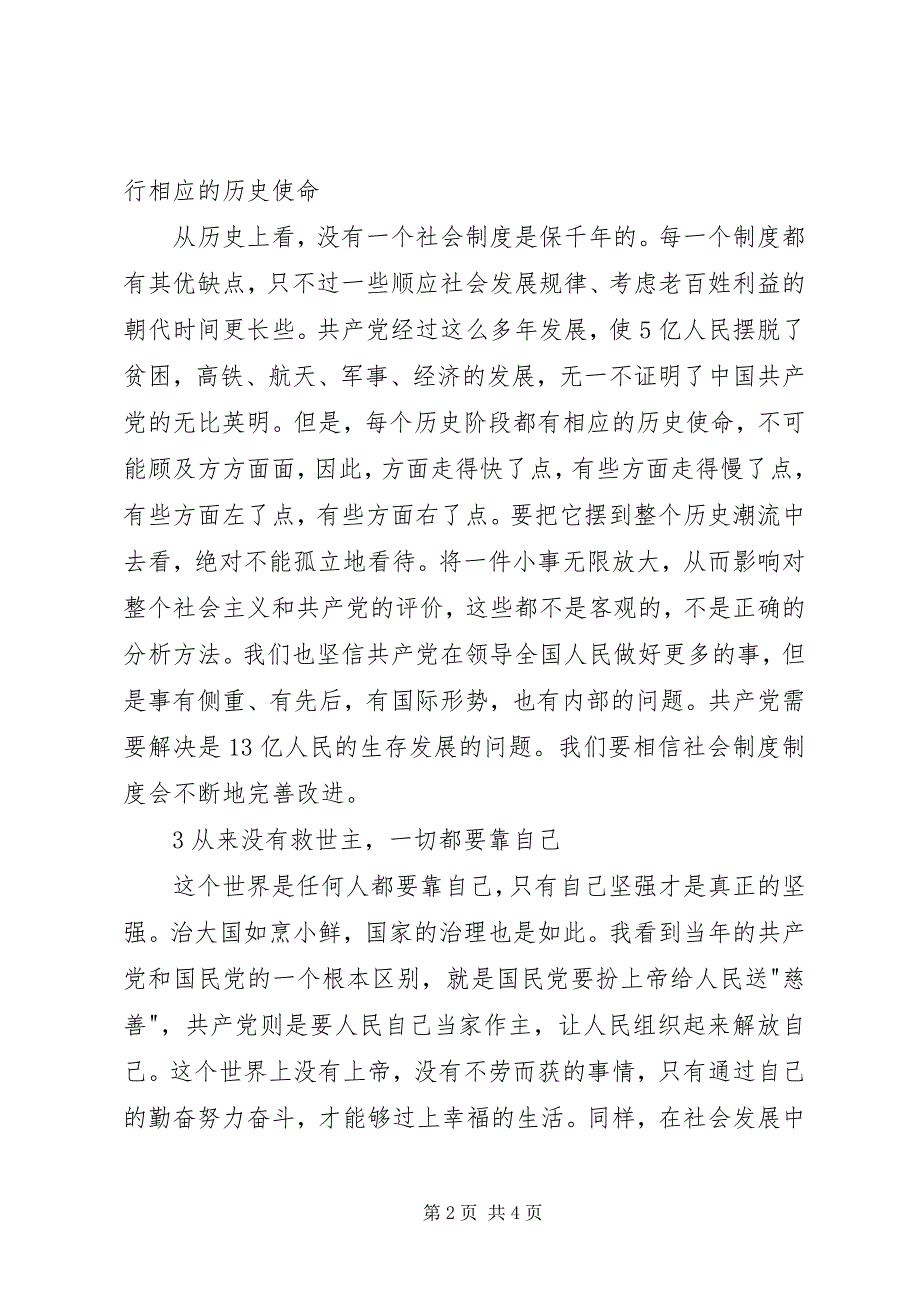 行相应的历史使命
从历史上看，没有一个社会制度是保千年的。每一个制度都
有其优缺点，只不过一些顺应社会发展规律、考虑老百姓利益的
朝代时间更长些。共产党经过这么多年发展，使 5 亿人民摆脱了
贫困，高铁、航天、军事、经济的发展，无一不证明了中国共产
党的无比英明。但是，每个历史阶段都有相应的历史使命，不可
能顾及方方面面，因此，方面走得快了点，有些方面走得慢了点，
有些方面左了点，有些方面右了点。要把它摆到整个历史潮流中
去看，绝对不能孤立地看待。将一件小事无限放大，从而影响对
整个社会主义和共产党的评价，这些都不是客观的，不是正确的
分析方法。我们也坚信共产党在领导全国人民做好更多的事，但
是事有侧重、有先后，有国际形势，也有内部的问题。共产党需
要解决是 13 亿人民的生存发展的问题。我们要相信社会制度制
度会不断地完善改进。
3 从来没有救世主，一切都要靠自己
这个世界是任何人都要靠自己，只有自己坚强才是真正的坚
强。治大国如烹小鲜，国家的治理也是如此。我看到当年的共产
党和国民党的一个根本区别，就是国民党要扮上帝给人民送"慈
善"，共产党则是要人民自己当家作主，让人民组织起来解放自
己。这个世界上没有上帝，没有不劳而获的事情，只有通过自己
的勤奋努力奋斗，才能够过上幸福的生活。同样，在社会发展中
第 2 页 共 4 页